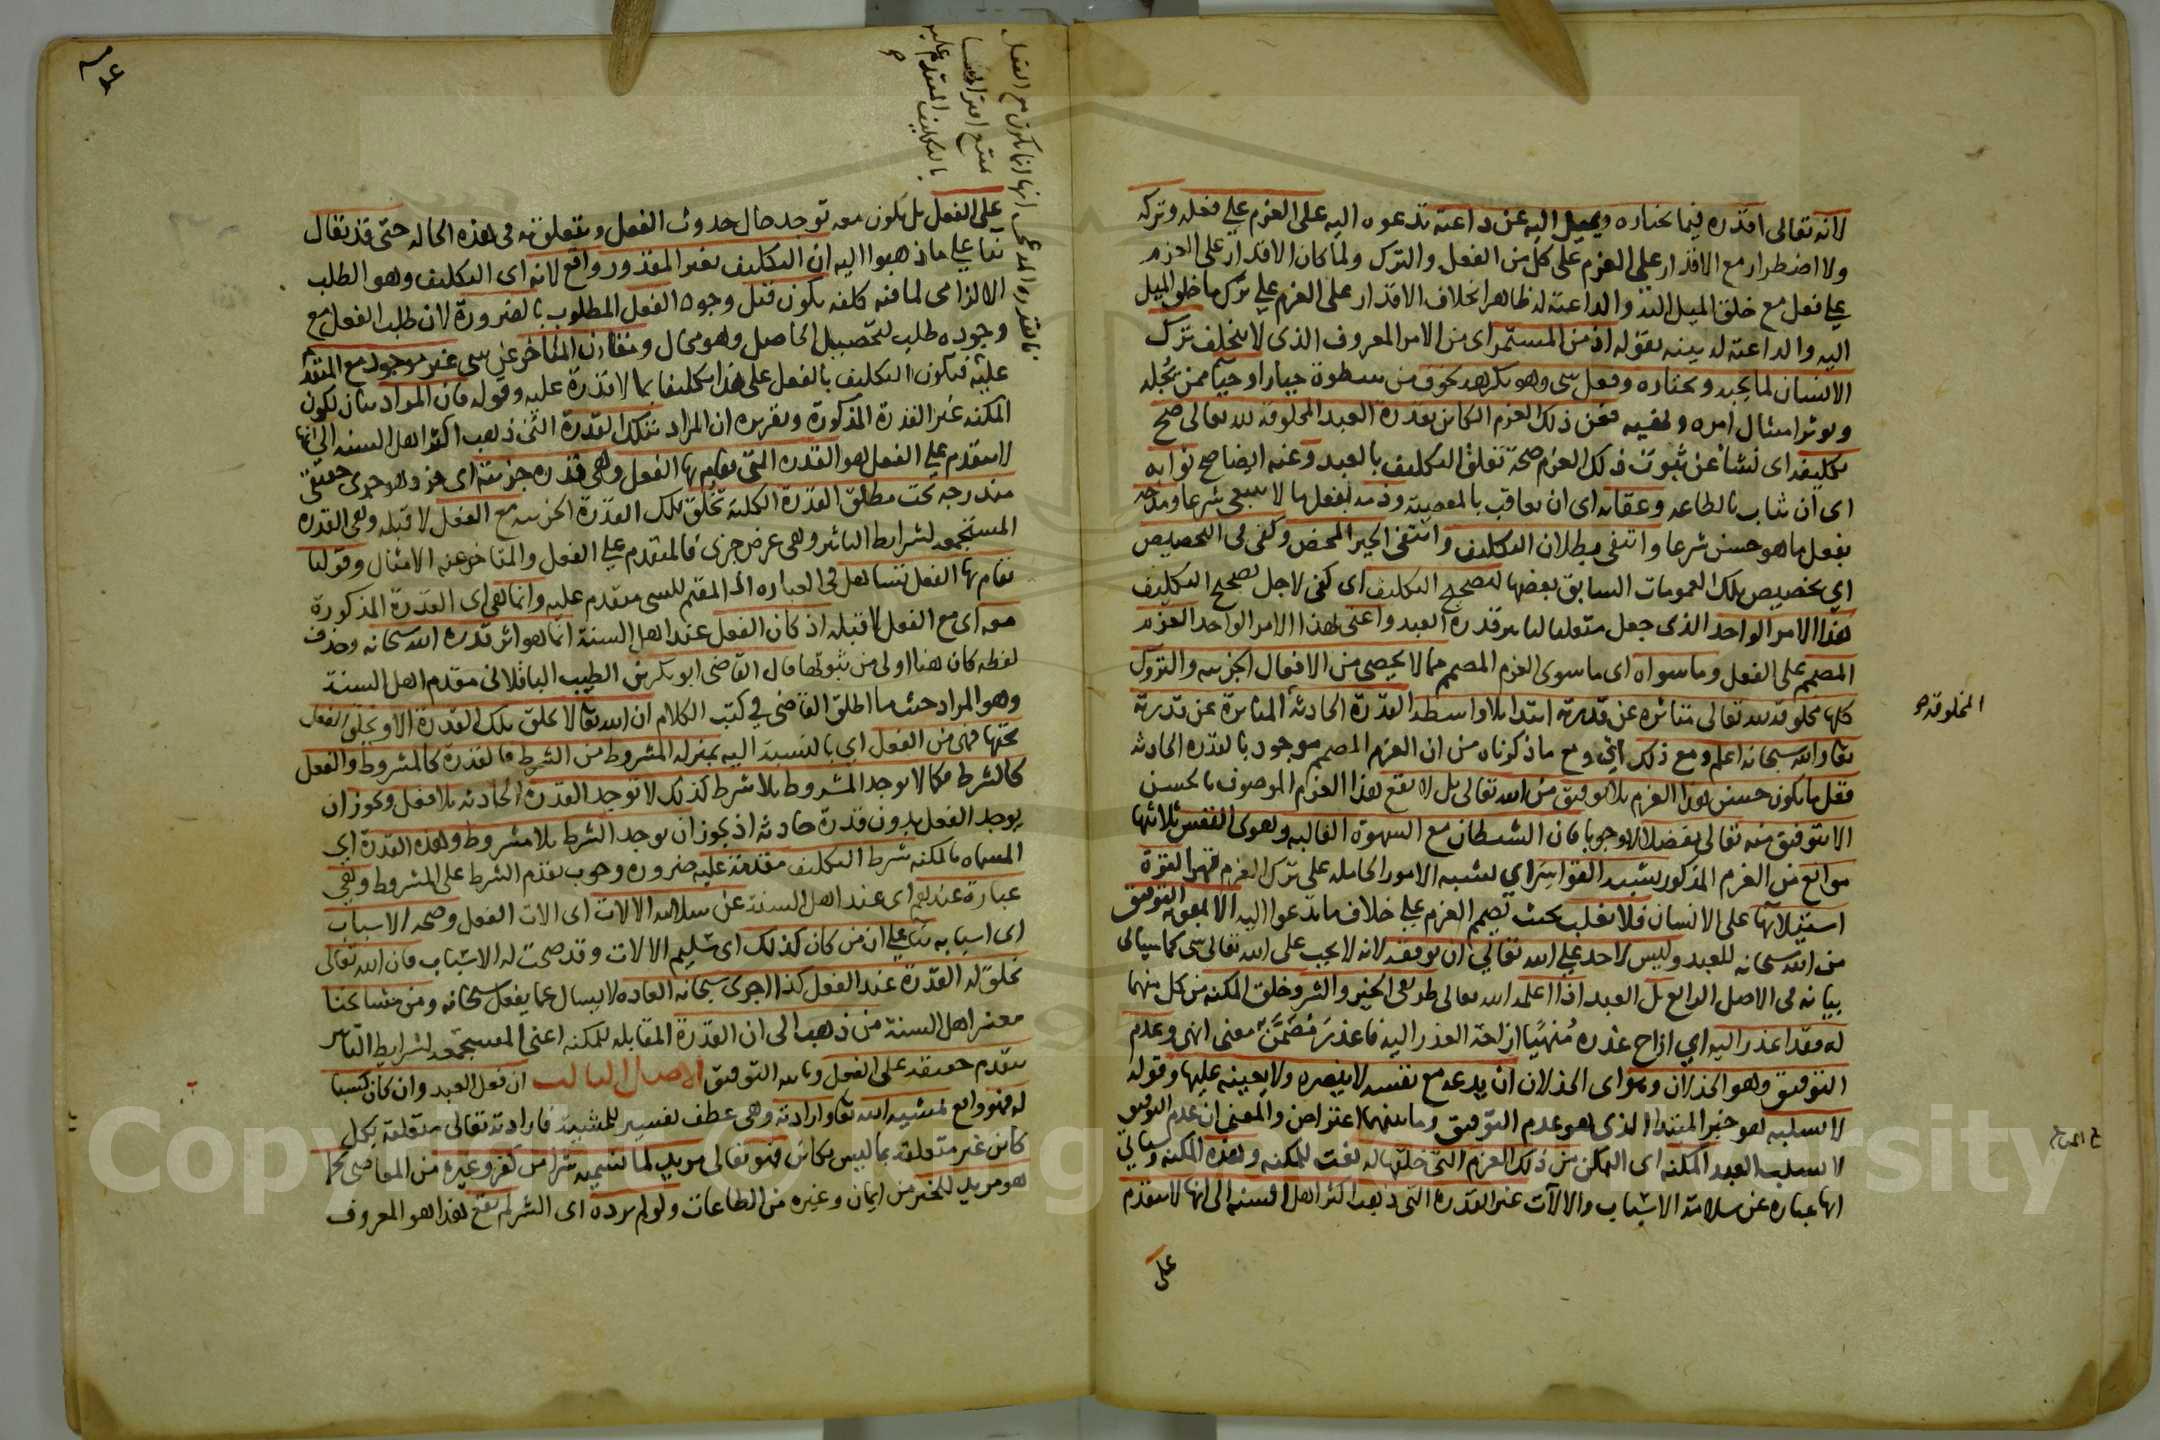 لانه تعالى اقدره فيما يختاره ويميل اليه عن داعية تدعوه اليه على العزم على فعله وتركه
ولا اضطرار مع الاقدار على العزم على كل من الفعل والترك ولما كان الاقدار على العزم
على فعل مع خلق الميل اليه والداعية له ظاهرا بخلاف الاقدار على العزم على ترك ما خلق الميل
اليه والداعية له بينه بقوله اذ من المستمر اى من الامر المعروف الذى لا يتخلف ترك
الانسان لما يحبه ويختاره وفعل شى وهو يكرهه لخوف من سطوة جبار او حياء ممن يجله
ويوثر امتثال امره ونهيه فعن ذلك العزم الكائن بقدرة العبد المخلوقة لله تعالى صح
تكليفه اى نشأ عن ثبوت ذلك العزم صحة تعلق التكليف بالعبد وعنه ايضا صح ثوابه
اى ان يثاب بالطاعه وعقابه اى ان يعاقب بالمعصية وذمه بفعل ما لا ينبغى شرعا ومدحه
بفعل ما هو حسن شرعا وانتفى بطلان التكليف وانتفى الجبر المحض وكفى فى التخصيص
اى تخصيص تلك العمومات السابق بعضها لتصحيح التكليف اى كفى لاجل تصحيح التكليف
هذا الامر الواحد الذى جعل متعلقا لتاثير قدرة العبد واعنى بهذا الامر الواحد العزم
المصمم على الفعل وما سواه اى ما سوى العزم المصمم مما لا يحصى من الافعال الجزئيه والتروك
كلها مخلوقة لله تعالى متاثره عن قدرته ابتداء بلا واسطة القدرة الحادثه المتاثرة عن قدرته
المخلوقة
تعا والله سبحانه اعلم ومع ذلك اى ومع ما ذكرناه من ان العزم المصمم موجود بالقدره الحادثه
فقل ما يكون حسن هذا العزم بلا توفيق من الله تعالى بل لا يقع هذا العزم الموصوف بالحسن
الا بتوفيق منه تعالى تفضلا لا وجوبا فان الشيطان مع الشهوة الغالبه وهوى النفس ثلاثتها
موانع من العزم المذكور تشبه القواسر اى تشبه الامور الحامله على ترك العزم قهرا لقوة
استيلائها على الانسان فلا تغلب بحيث يصمم العزم على خلاف ما تدعوا اليه الا بمعونة التوفيق
من الله سبحانه للعبد وليس لاحد على الله تعالى ان يوفقه لانه لا يجب على الله تعالى شى كما سياتى
بيانه فى الاصل الرابع بل العبد اذا اعلمه الله تعالى طريقى الخير والشر وخلق المكنه من كل منهما
له فقد اعذر اليه اى ازاح عذره مُنهيًا ازاحة العذر اليه فاعذر مُضَمَّن معنى انهى وعدم
التوفيق وهو الخذلان وهو اى الخذلان ان يدعه مع نفسه لا ينصره ولا يعينه عليها وقوله
لا يسلبه هو خبر المبتدا الذى هو عدم التوفيق وما بينهما اعتراض والمعنى ان عدم التوفيق
لا يسلب العبد المكنه اى التمكن من ذلك العزم التى خلقها له نعت للمكنه وهذه المكنه وسياتى
انها عباره عن سلامة الاسباب والالآت غير القدره التى ذهب اكثر اهل السنه الى انها لا تتقدم
على
على الفعل بل يكون معه توجد حال حدوث الفعل ويتعلق به فى هذه الحاله حتى قد يقال
بنا على ما ذهبوا اليه ان التكليف بغير المقدور واقع لانه اى التكليف وهو الطلب
الالزامى لما فيه كلفه يكون قبل وجود الفعل المطلوب بالضرورة لان طلب الفعل مع
وجوده طلب لتحصيل الحاصل وهو محال ومقارن المتاخر عن شى غير موجود مع المتقدم
عليه فيكون التكليف بالفعل على هذا تكليفا بما لا قدرة عليه وقوله فان المراد بيان لكون
المكنه غير القدرة المذكورة وتقريره ان المراد بتلك القدرة التى ذهب اكثر اهل السنه الى انها
لا تتقدم على الفعل هو القدرة التى يقام بها الفعل وهى قدره جزئية اى فرد وهو جزئى حقيقى
مندرجه تحت مطلق القدرة الكلية تخلق تلك القدرة الجزئيه مع الفعل لا قبله وهى القدره
المستجمعه لشرايط التاثير وهى عرض جزئ فالمتقدم على الفعل والمتاخر عنه الامثال وقولنا
يقام بها الفعل تساهل فى العباره اذ المقيم للشى متقدم عليه وانما هى اى القدرة المذكورة
معه اى مع الفعل لا قبله اذ كان الفعل عند اهل السنة انما هو اثر قدرة الله سبحانه وحذف
لفظه كان هنا اولى من ثبوتها قال القاضى ابو بكر بن الطيب الباقلانى مقدم اهل السنة
وهو المراد حيث ما اطلق القاضى فى كتب الكلام ان الله تعا لا يخلق تلك القدرة الا ويخلق الفعل
تحتها فهى من الفعل اى بالنسبة اليه بمنزله المشروط من الشرط فالقدرة كالمشروط والفعل
كالشرط فكما لا يوجد المشروط بلا شرط كذلك لا توجد القدرة الحادثه بلا فعل ويجوز ان
يوجد الفعل بدون قدرة حادثه اذ يجوز ان يوجد الشرط بلا مشروط وهذه القدرة اى
المسماه بالمكنه شرط التكليف متقدمة عليه ضرورة وجوب تقدم الشرط على المشروط وهى
عبارة عندهم اى عند اهل السنة عن سلامة الالات اى الات الفعل وصحه الاسباب
اى اسبابه بنا على ان من كان كذلك اى سليم الالات وقد صحت له الاسباب فان الله تعالى
يخلق له القدرة عند الفعل كذا اجرى سبحانه العاده لا يسال عما يفعل سبحانه ومن مشايخنا
معشر اهل السنة من ذهب الى ان القدرة المقابله للمكنه اعنى المستجمعه لشرايط التاثير
تتقدم حقيقه على الفعل وبالله التوفيق الاصل الثالث ان فعل العبد وان كان كسبا
له فهو واقع بمشيه الله تعا وارادته وهى عطف تفسير للمشيه فارادته تعالى متعلقة بكل
كائن غير متعلقة بما ليس بكائن فهو تعالى مريد لما نسميه شرا من كفر وغيره من المعاصى كما
هو مريد للخير من ايمان وغيره من الطاعات ولو لم يرده اى الشر لم يقع هذا هو المعروف